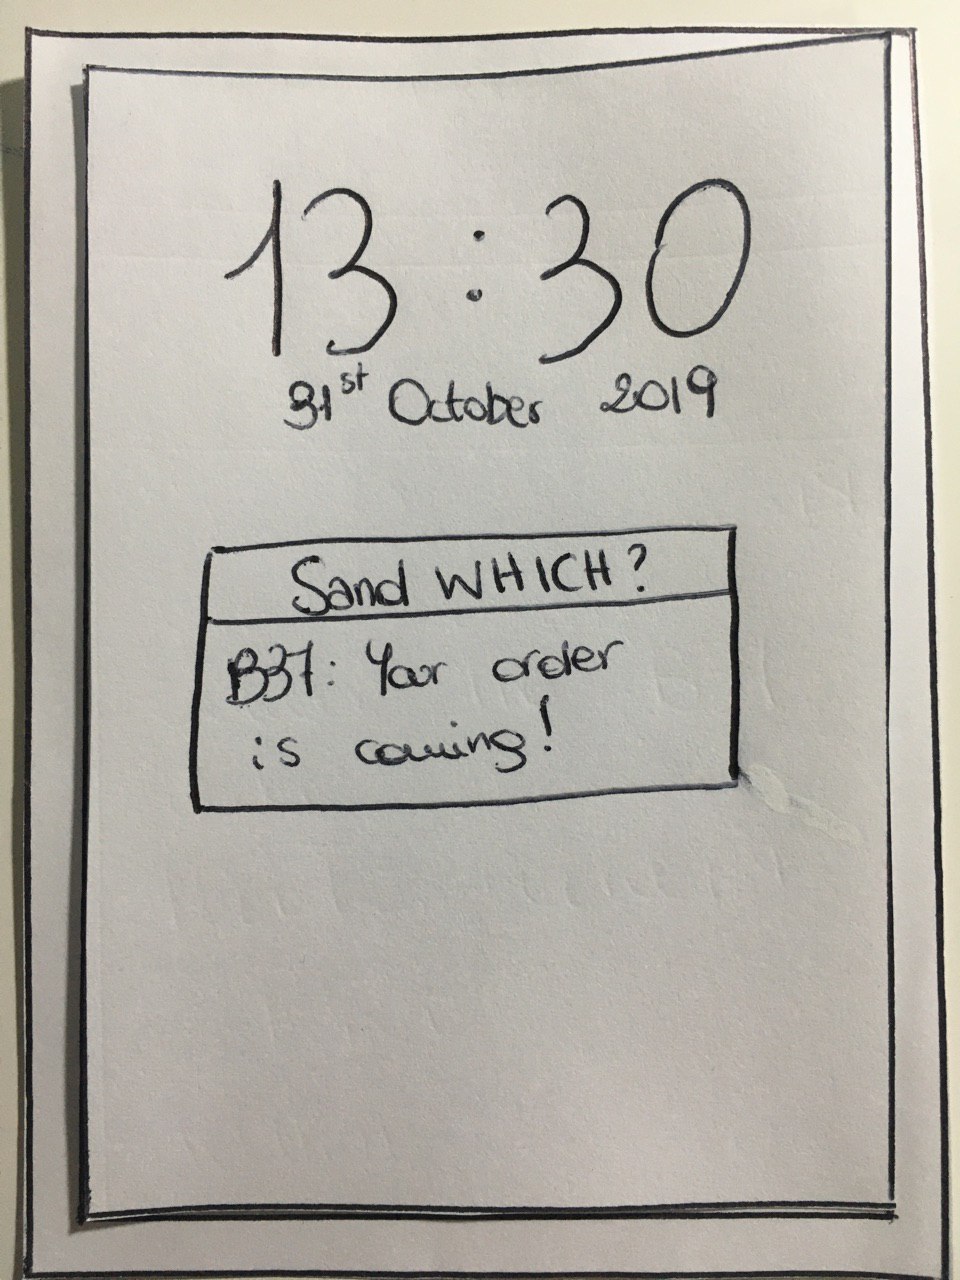 13:30
31st October 2019
Sand WHICH?
B37: Your order
is coming!